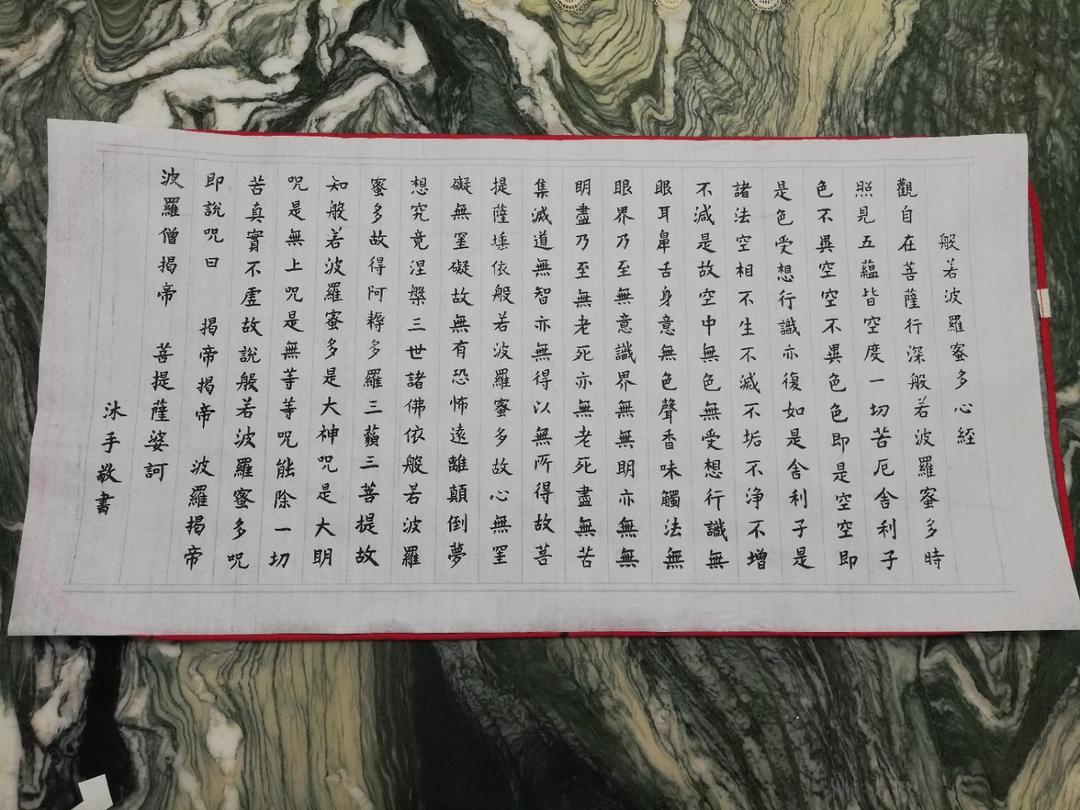 般若波羅蜜多心経
觀自在菩薩行深般若波羅蜜多時
照見五蘊皆空度一切苦厄舍利子
色不異空空不異色色即是空空即
是色受想行識亦復如是舍利子是
諸法空相不生不滅不垢不浄不增
不減是故空中無色無受想行識無
眼耳鼻舌身意無色聲香味觸法無
眼界乃至無意識界無無明亦無無
明盡乃至無老死亦無老死盡無苦
集滅道無智亦無得以無所得故菩
提薩埵依般若波羅蜜多故心無罣
礙無罣礙故無有恐怖遠離顛倒夢
想究竟涅槃三世諸佛依般若波羅
蜜多故得阿耨多羅三藐三菩提故
知般若波羅蜜多是大神咒是大明
咒是無上咒是無等等咒能除一切
苦真實不虛故說般若波羅蜜多咒
即說咒曰 揭帝揭帝 波羅揭帝
波羅僧揭帝 菩提薩婆訶
沐手敬書